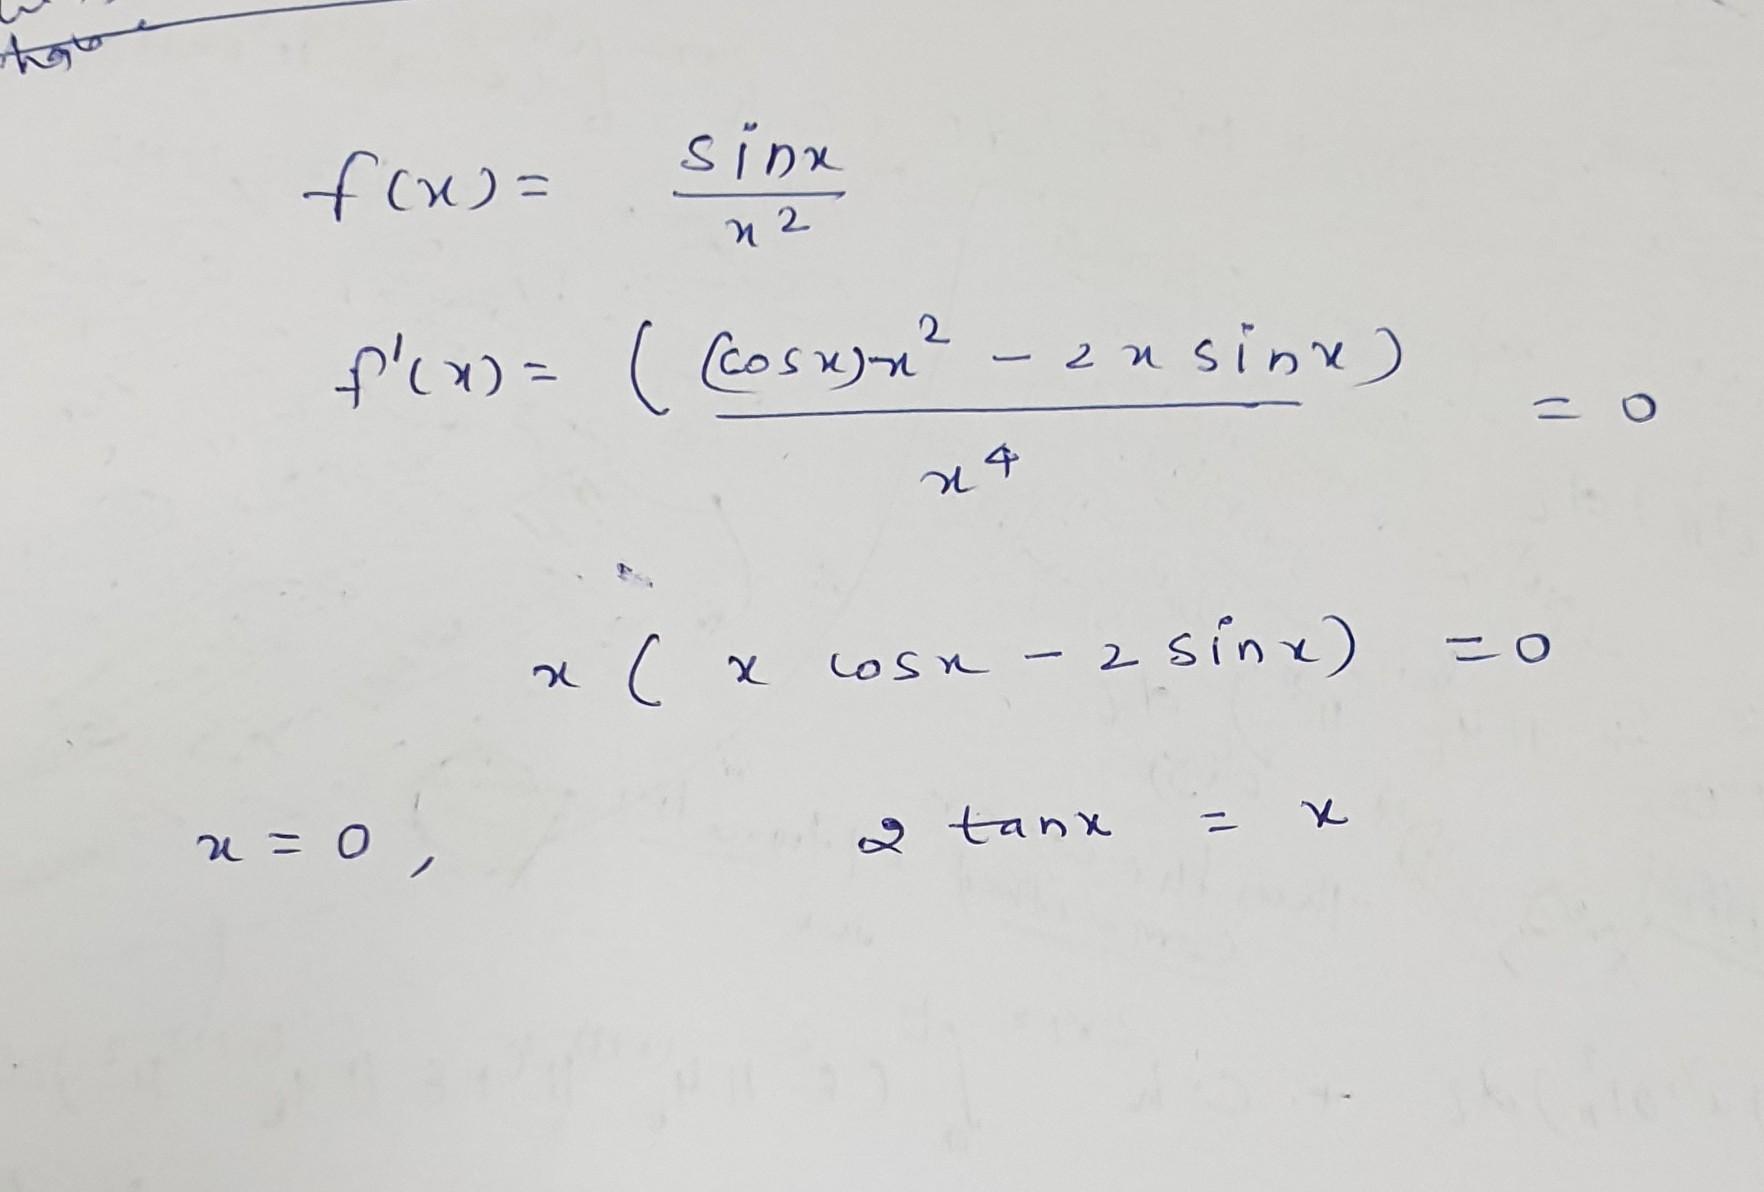 f(x) = sinx / x²
f'(x) = ((cosx)x² - 2x sinx) / x⁴ = 0
x ( x cosx - 2 sinx) = 0
x = 0 , 2 tanx = x